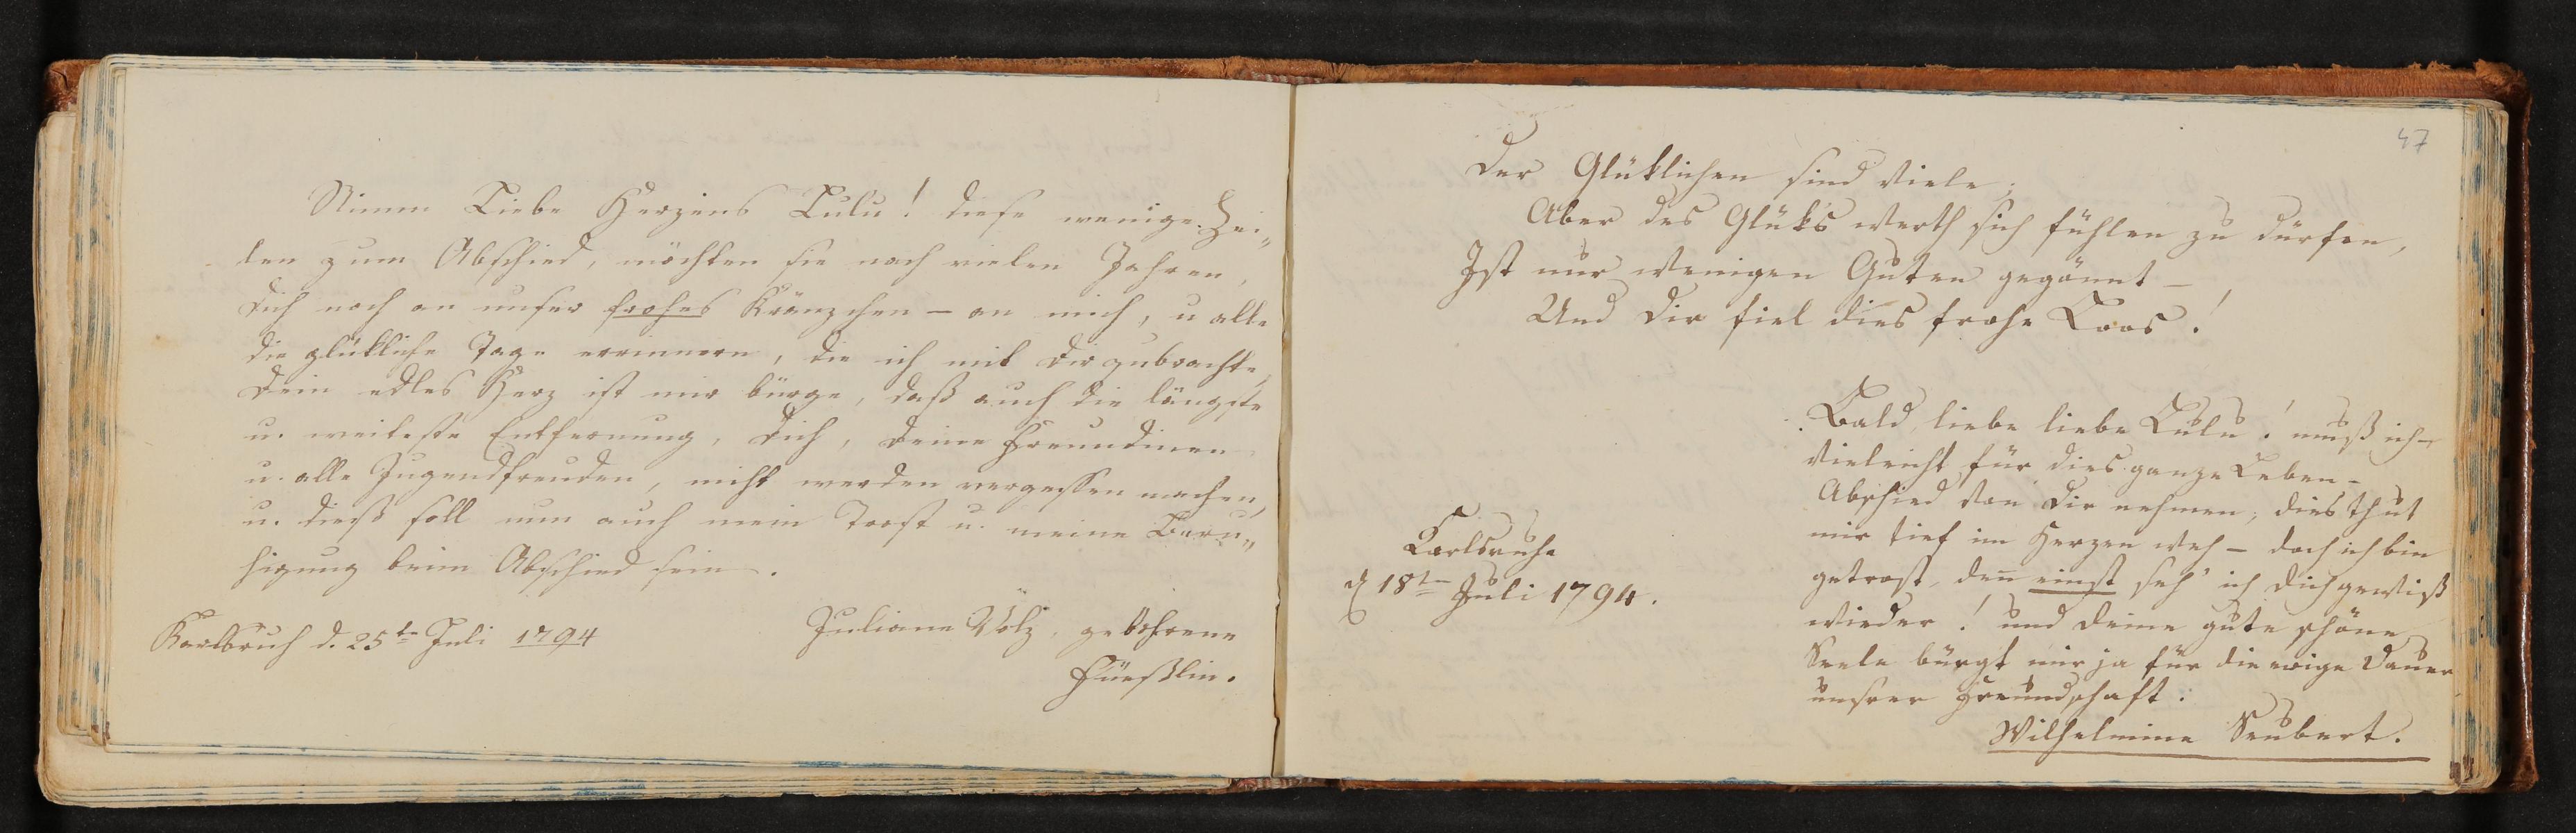 Nimm Liebe Herzens Lulu! diese wenige Zei„
len zum Abschied, möchten sie nach vielen Jahren,
dich noch an unser frohes Kränzchen – an mich, u alle
die glükliche Tage errinnern, die ich mit dir zubrachte,
dein edles Herz ist mir bürge, daß auch die längste
u. weiteste Entfernung, dich, deine Freundinen
u. alle Jugendfreuden, nicht werden vergessen machen,
u. dieß soll nun auch mein Trost u. meine Beru„
higung beim Abschied sein.
Karlsruh d. 25ten Juli 1794
Juliane Völz, gebohrene
Füeßlin.
47
Der Glüklichen sind Viele;
Aber des Glüks werth sich fühlen zu dürfen,
Ist nur Wenigen Guten gegönnt –
Und Dir fiel dies frohe Loos!
Bald liebe liebe Lulu! muß ich –
Vieleicht für dies ganze Leben –
Abschied von Dir nehmen; dies thut
mir tief im Herzen weh – doch ich bin
getrost, deñ einst seh' ich dich gewiß
wieder! und deine gute schöne
Seele bürgt mir ja für die ewige Dauer
unsrer Freundschaft.
Carlsruhe
d 18ten Juli 1794.
Wilhelmine Seubert.